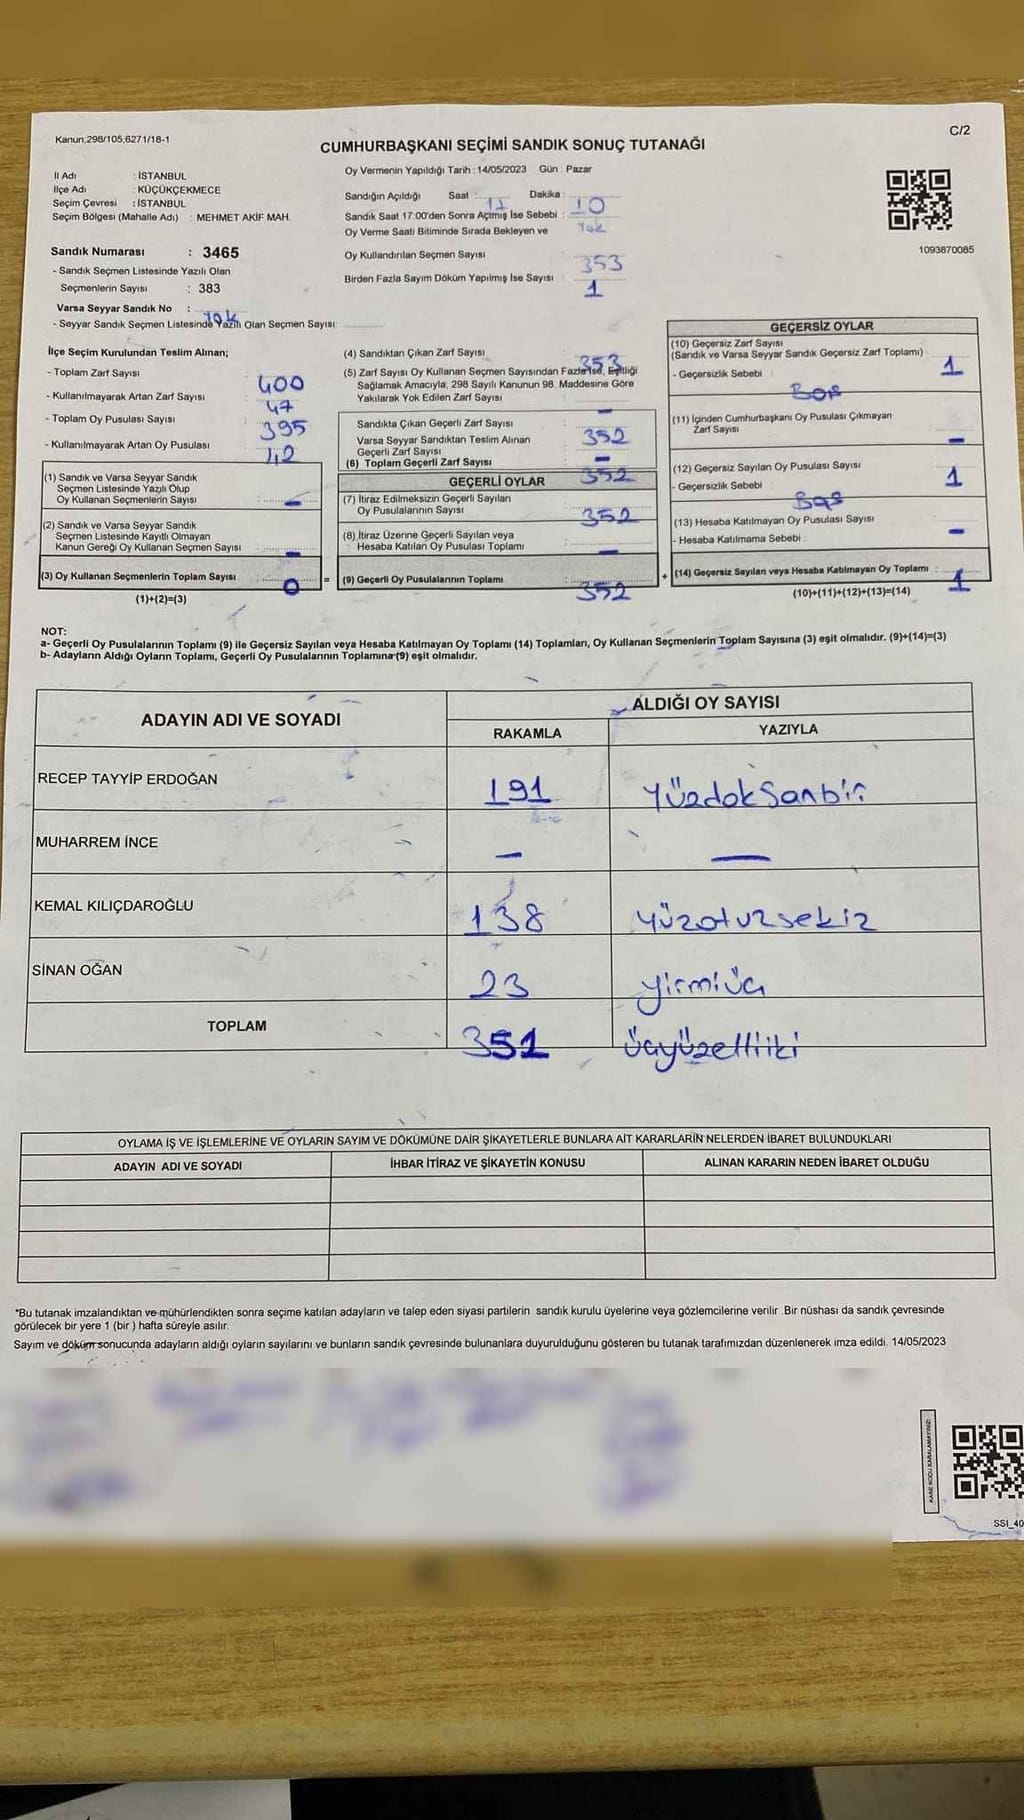 Kanun,298/105,6271/18-1
C/2
CUMHURBAŞKANI SEÇİMİ SANDIK SONUÇ TUTANAĞI
İl Adı : İSTANBUL
İlçe Adı : KÜÇÜKÇEKMECE
Seçim Çevresi : İSTANBUL
Seçim Bölgesi (Mahalle Adı) : MEHMET AKİF MAH.
Oy Vermenin Yapıldığı Tarih : 14/05/2023 Gün : Pazar
Sandığın Açıldığı Saat : 17 Dakika : 10
Sandık Saat 17:00'den Sonra Açılmış İse Sebebi : Yok
Oy Verme Saati Bitiminde Sırada Bekleyen ve
Oy Kullandırılan Seçmen Sayısı : 353
Birden Fazla Sayım Döküm Yapılmış İse Sayısı : 1
1093870085
Sandık Numarası : 3465
- Sandık Seçmen Listesinde Yazılı Olan
Seçmenlerin Sayısı : 383
Varsa Seyyar Sandık No : Yok
- Seyyar Sandık Seçmen Listesinde Yazılı Olan Seçmen Sayısı:
İlçe Seçim Kurulundan Teslim Alınan;
- Toplam Zarf Sayısı : 400
- Kullanılmayarak Artan Zarf Sayısı : 47
- Toplam Oy Pusulası Sayısı : 395
- Kullanılmayarak Artan Oy Pusulası : 42
(1) Sandık ve Varsa Seyyar Sandık
Seçmen Listesinde Yazılı Olup
Oy Kullanan Seçmenlerin Sayısı : -
(2) Sandık ve Varsa Seyyar Sandık
Seçmen Listesinde Kayıtlı Olmayan
Kanun Gereği Oy Kullanan Seçmen Sayısı : -
(3) Oy Kullanan Seçmenlerin Toplam Sayısı : 0
(1)+(2)=(3)
=
(4) Sandıktan Çıkan Zarf Sayısı : 353
(5) Zarf Sayısı Oy Kullanan Seçmen Sayısından Fazla İse, Eşitliği
Sağlamak Amacıyla, 298 Sayılı Kanunun 98. Maddesine Göre
Yakılarak Yok Edilen Zarf Sayısı : -
Sandıkta Çıkan Geçerli Zarf Sayısı : 352
Varsa Seyyar Sandıktan Teslim Alınan
Geçerli Zarf Sayısı : -
(6) Toplam Geçerli Zarf Sayısı : 352
GEÇERLİ OYLAR
(7) İtiraz Edilmeksizin Geçerli Sayılan
Oy Pusulalarının Sayısı : 352
(8) İtiraz Üzerine Geçerli Sayılan veya
Hesaba Katılan Oy Pusulası Toplamı : -
(9) Geçerli Oy Pusulalarının Toplamı : 352
+
GEÇERSİZ OYLAR
(10) Geçersiz Zarf Sayısı
(Sandık ve Varsa Seyyar Sandık Geçersiz Zarf Toplamı) : 1
- Geçersizlik Sebebi : Boş
(11) İçinden Cumhurbaşkanı Oy Pusulası Çıkmayan
Zarf Sayısı : -
(12) Geçersiz Sayılan Oy Pusulası Sayısı : 1
- Geçersizlik Sebebi : Boş
(13) Hesaba Katılmayan Oy Pusulası Sayısı : -
- Hesaba Katılmama Sebebi :
(14) Geçersiz Sayılan veya Hesaba Katılmayan Oy Toplamı : 1
(10)+(11)+(12)+(13)=(14)
NOT:
a- Geçerli Oy Pusulalarının Toplamı (9) ile Geçersiz Sayılan veya Hesaba Katılmayan Oy Toplamı (14) Toplamları, Oy Kullanan Seçmenlerin Toplam Sayısına (3) eşit olmalıdır. (9)+(14)=(3)
b- Adayların Aldığı Oyların Toplamı, Geçerli Oy Pusulalarının Toplamına (9) eşit olmalıdır.
ADAYIN ADI VE SOYADI
ALDIĞI OY SAYISI
RAKAMLA YAZIYLA
RECEP TAYYİP ERDOĞAN 191 Yüzdoksanbir
MUHARREM İNCE - -
KEMAL KILIÇDAROĞLU 138 Yüzotuzsekiz
SİNAN OĞAN 23 yirmiüç
TOPLAM 352 üçyüzelliiki
OYLAMA İŞ VE İŞLEMLERİNE VE OYLARIN SAYIM VE DÖKÜMÜNE DAİR ŞİKAYETLERLE BUNLARA AİT KARARLARIN NELERDEN İBARET BULUNDUKLARI
ADAYIN ADI VE SOYADI İHBAR İTİRAZ VE ŞİKAYETİN KONUSU ALINAN KARARIN NEDEN İBARET OLDUĞU
*Bu tutanak imzalandıktan ve mühürlendikten sonra seçime katılan adayların ve talep eden siyasi partilerin sandık kurulu üyelerine veya gözlemcilerine verilir. Bir nüshası da sandık çevresinde
görülecek bir yere 1 (bir ) hafta süreyle asılır.
Sayım ve döküm sonucunda adayların aldığı oyların sayılarını ve bunların sandık çevresinde bulunanlara duyurulduğunu gösteren bu tutanak tarafımızdan düzenlenerek imza edildi. 14/05/2023
KARE KODU KARALAMAYINIZ!
SSI_40